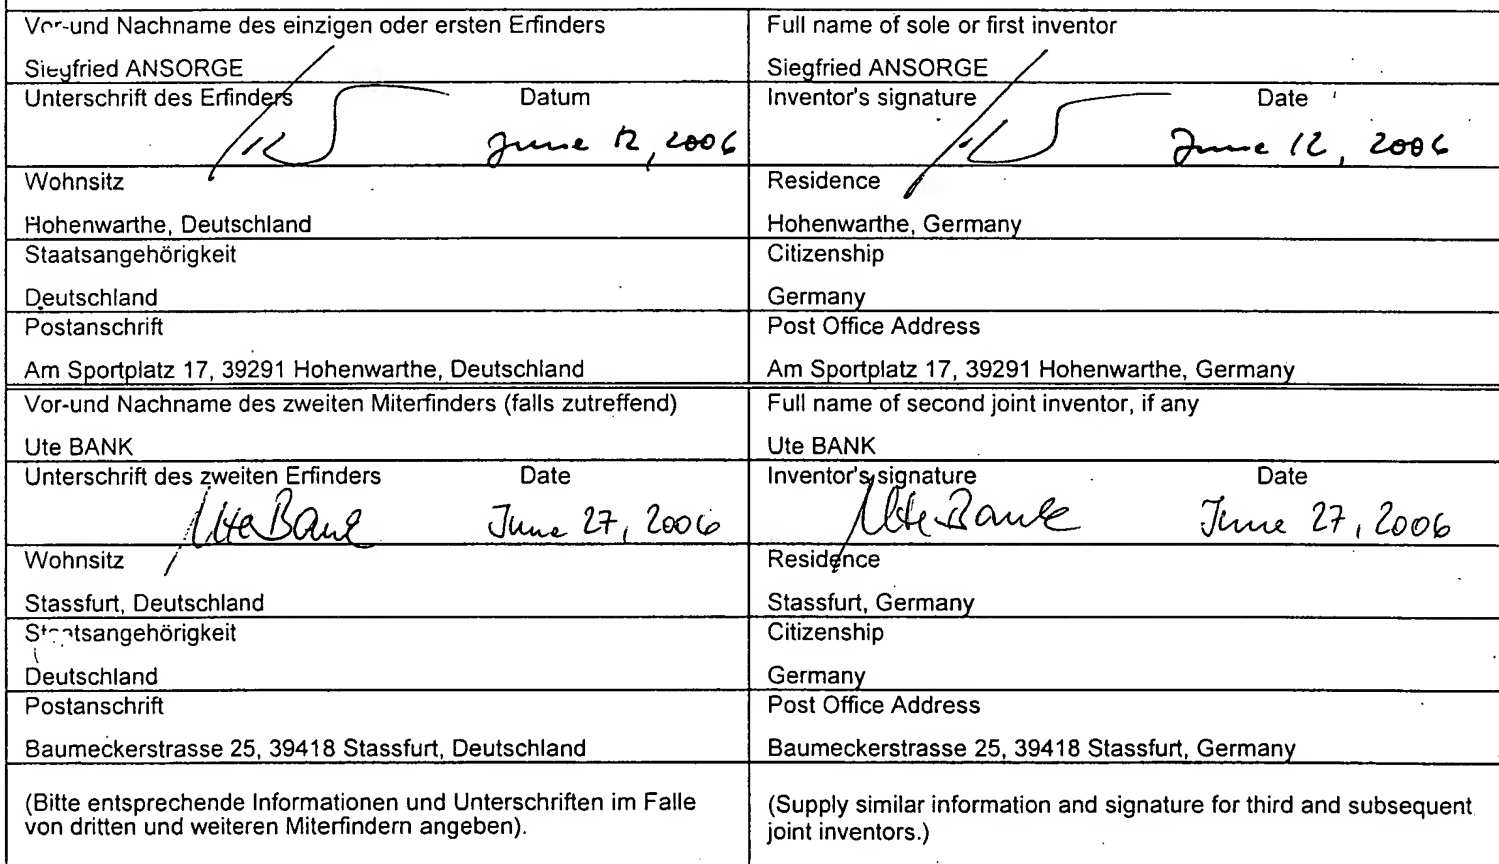 Vor-und Nachname des einzigen oder ersten Erfinders
Siegfried ANSORGE
Full name of sole or first inventor
Siegfried ANSORGE
Unterschrift des Erfinders Datum
June 12, 2006
Inventor's signature Date
June 12, 2006
Wohnsitz
Hohenwarthe, Deutschland
Residence
Hohenwarthe, Germany
Staatsangehörigkeit
Deutschland
Citizenship
Germany
Postanschrift
Am Sportplatz 17, 39291 Hohenwarthe, Deutschland
Post Office Address
Am Sportplatz 17, 39291 Hohenwarthe, Germany
Vor-und Nachname des zweiten Miterfinders (falls zutreffend)
Ute BANK
Full name of second joint inventor, if any
Ute BANK
Unterschrift des zweiten Erfinders Date
Ute Bank June 27, 2006
Inventor's signature Date
Ute Bank June 27, 2006
Wohnsitz
Stassfurt, Deutschland
Residence
Stassfurt, Germany
Staatsangehörigkeit
Deutschland
Citizenship
Germany
Postanschrift
Baumeckerstrasse 25, 39418 Stassfurt, Deutschland
Post Office Address
Baumeckerstrasse 25, 39418 Stassfurt, Germany
(Bitte entsprechende Informationen und Unterschriften im Falle
von dritten und weiteren Miterfindern angeben).
(Supply similar information and signature for third and subsequent
joint inventors.)